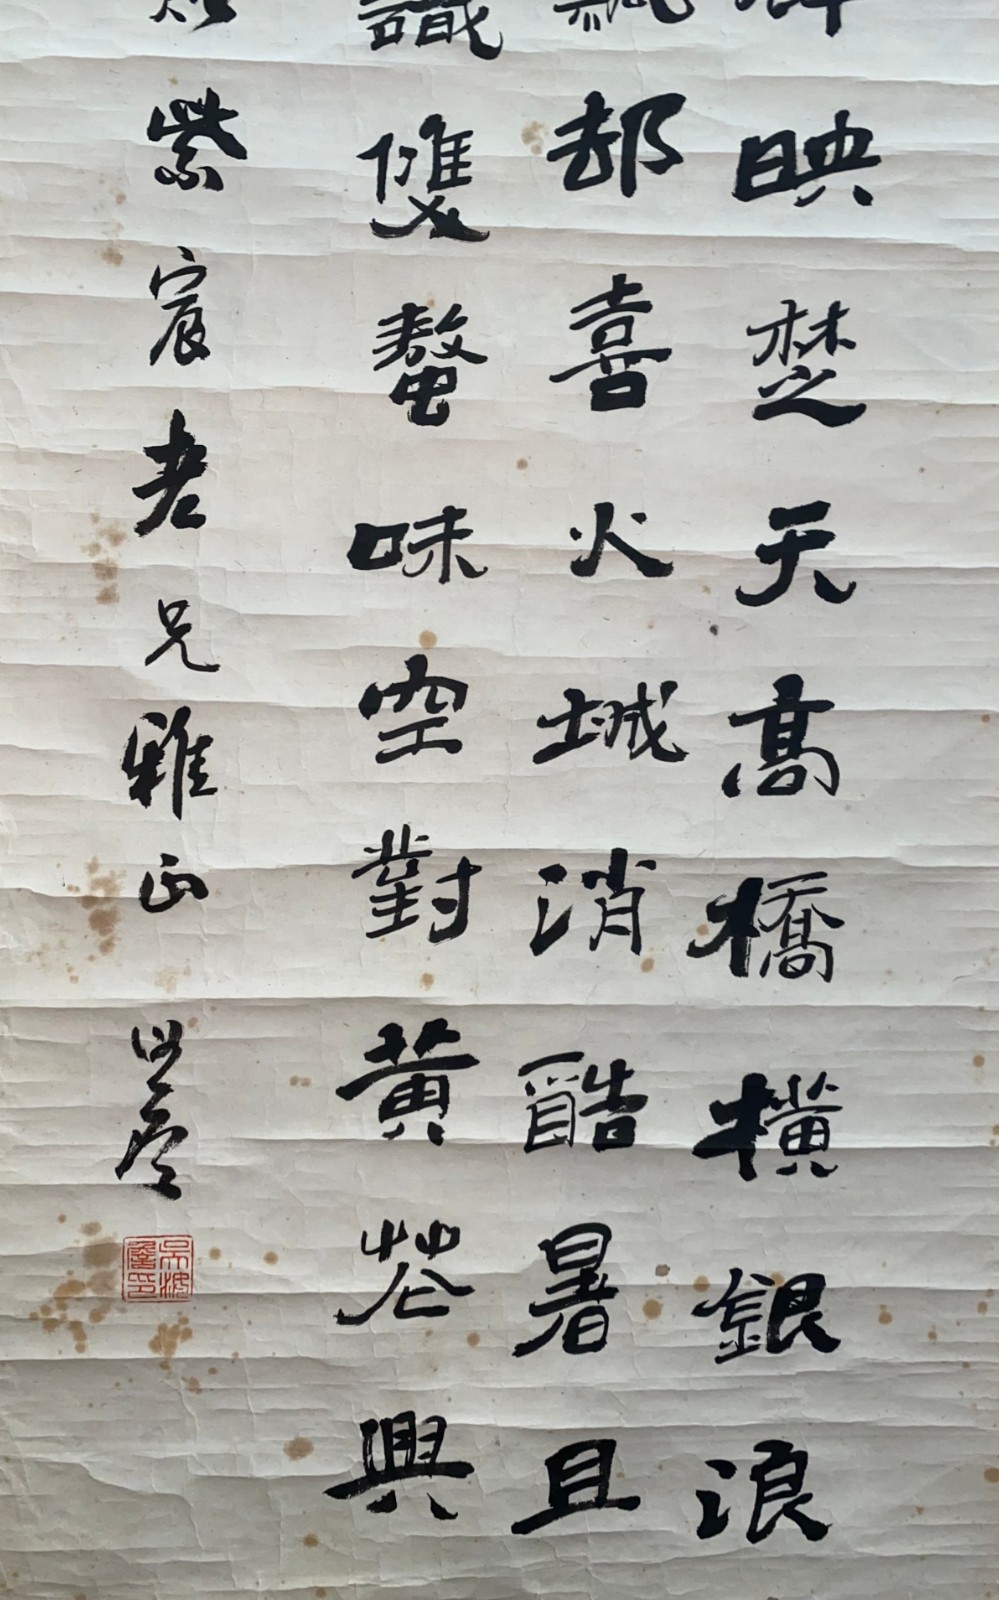 映楚天高橋橫銀浪
却喜火城消酷暑且
識雙螯味空對黃花興
紫宸老兄雅正